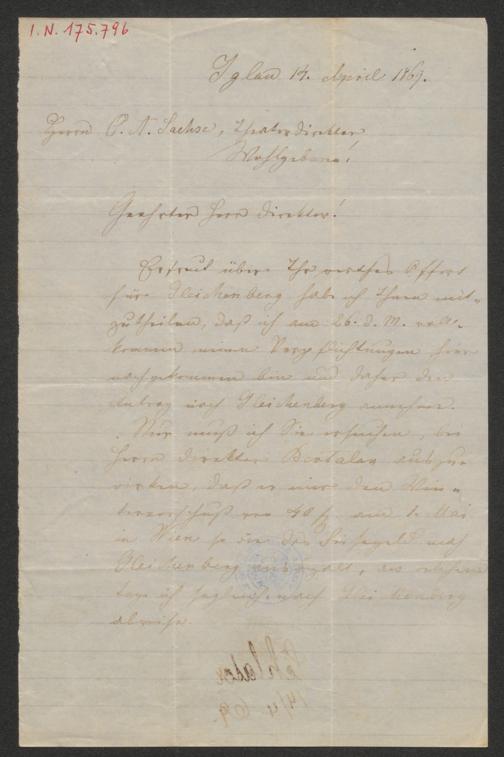 I.N. 175.796
Iglau 14. April 1869.
Herrn P. A. Sachse, Theaterdirektor
Wohlgeboren!
Geehrter Herr Direktor!
Erfreut über Ihr werthes Offert
für Gleichenberg habe ich Ihnen mit-
zutheilen, daß ich am 26. d. M. voll-
kommen meinen Verpflichtungen hier
nachgekommen bin und daher den
Antrag nach Gleichenberg annehme.
Nur muß ich Sie ersuchen, bei
Herrn Direktor Bertalan auszu-
wirken, daß er mir den
von 40 f. am 1. Mai
in Wien so wie das Reisegeld nach
Gleichenberg auszahlt, an welchem
Tage ich sogleich nach Gleichenberg
abreise.
14/4 69